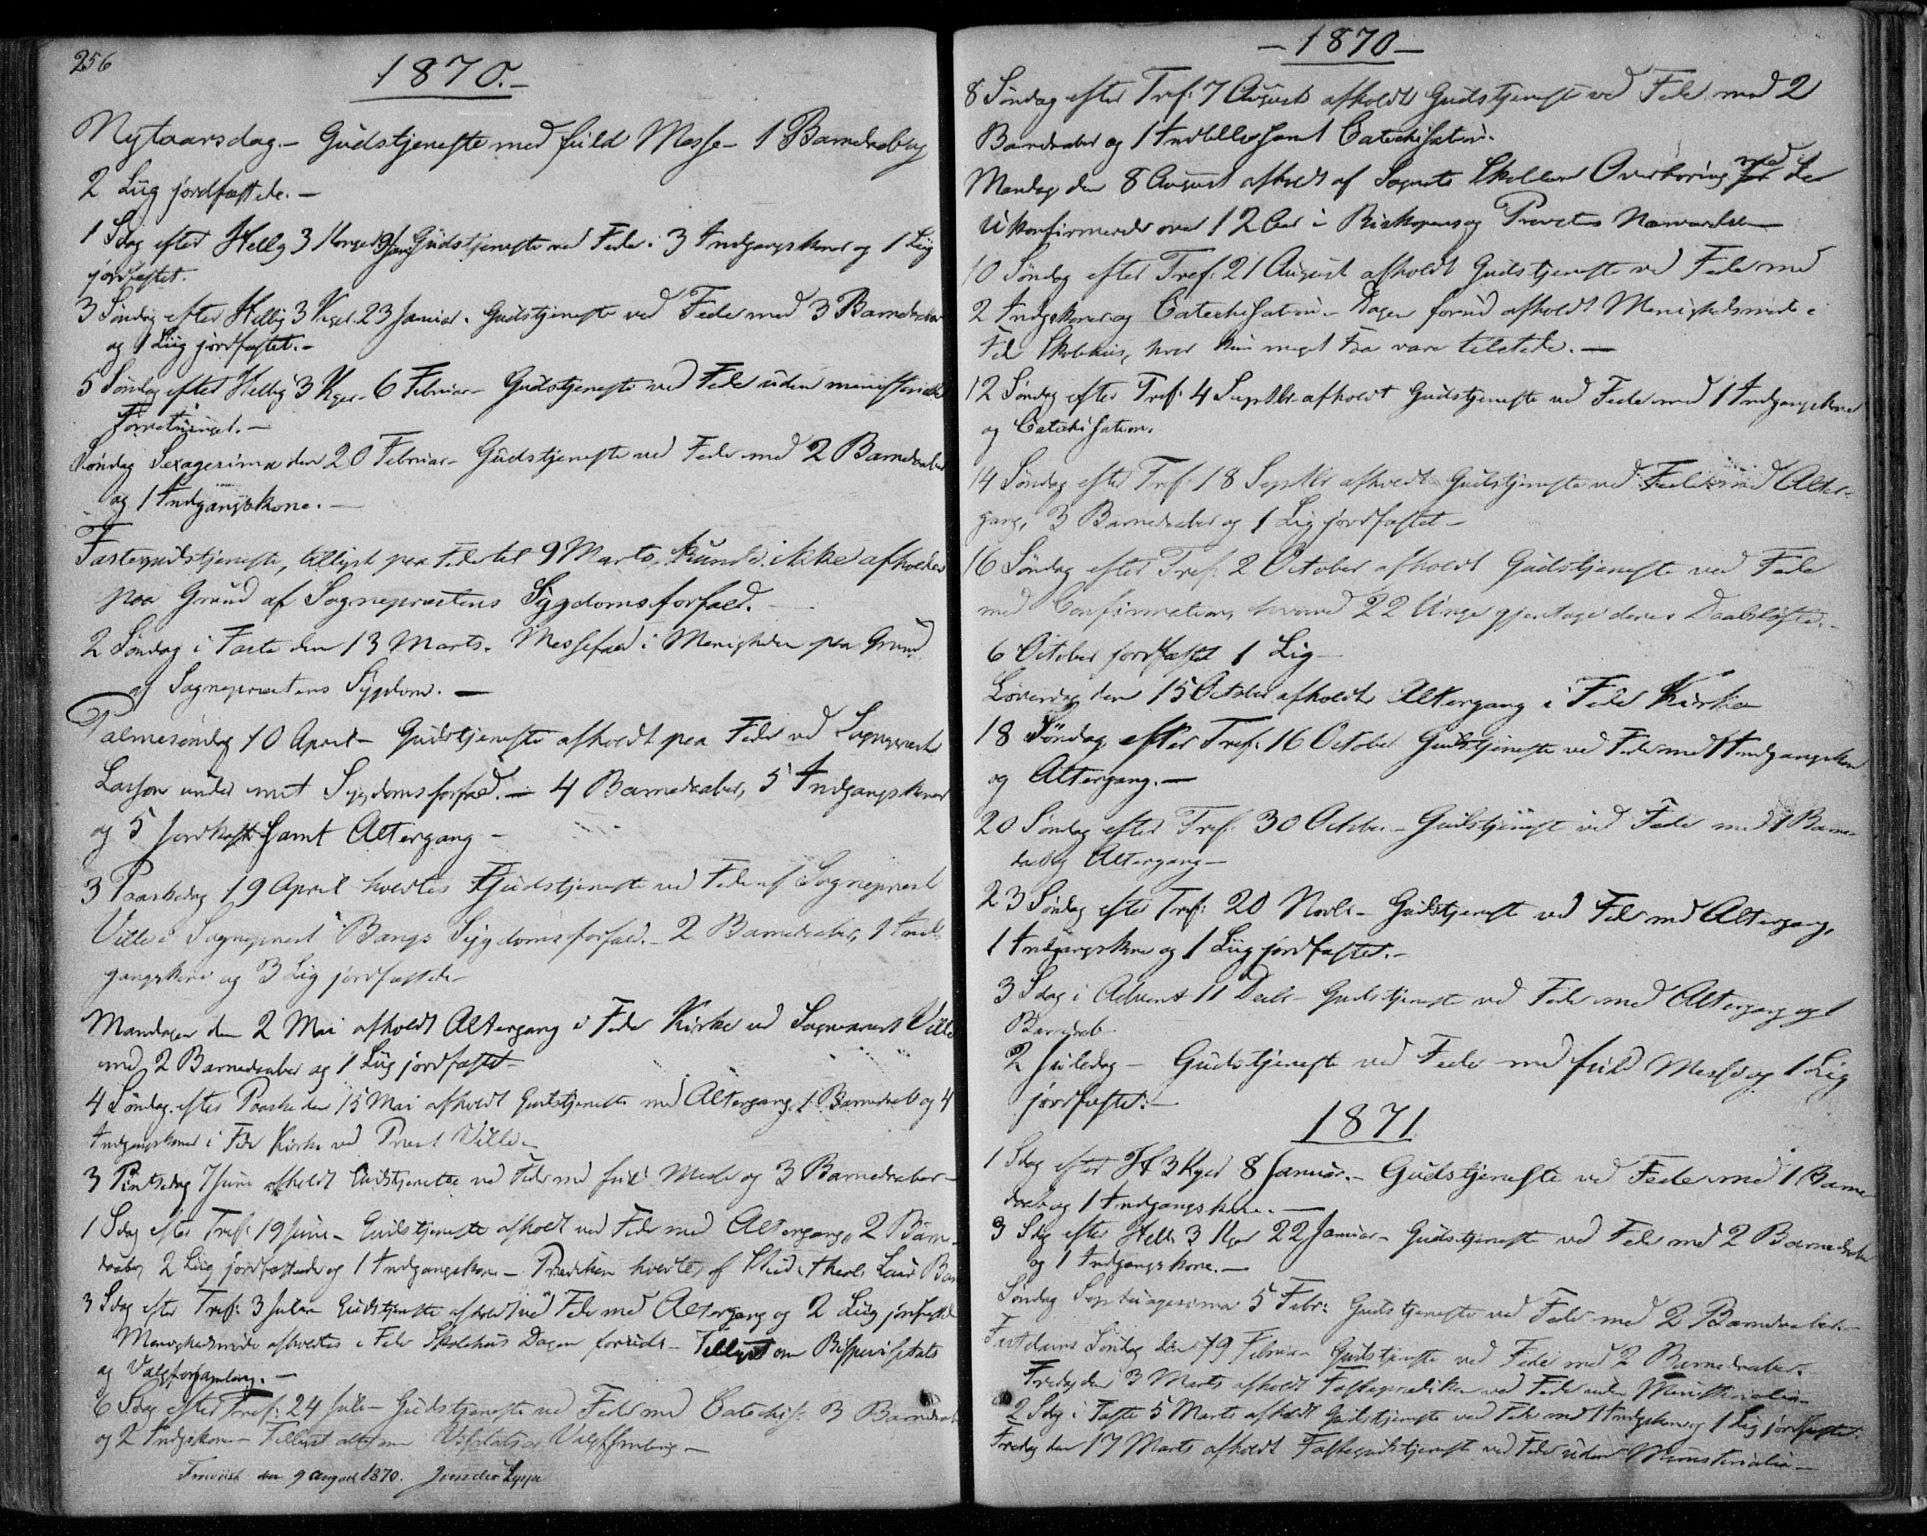 256
1870.-
Nytaarsdag - Gudstjeneste med fuld Messe - 1 Barnedaab og
2 Liig jordfæstede. -
1 Sdag efter Hellg 3 Konger 9 Jan Gudstjeneste ved Feda. 3 Indgangskoner og 1 Liig
jordfæstet.
3 Søndag efter Hellig 3 Kger. 23 Januar. Gudstjeneste ved Feda med 3 Barnedaaber
og 1 Liig jordfæstet. -
5 Søndag efter Hellig 3 Kger - 6 Februar - Gudstjeneste ved Feda uden ministerielle
Forretninger. -
Søndag Sexagesima den 20 Februar - Gudstjeneste ved Feda med 2 Barnedaaber
og 1 Indgangskone. -
Fastegudstjeneste, tillyst paa Feda til 9 Marts, kunde ikke afholdes
paa Grund af Sognepræstens Sygdomsforfald. -
2 Søndag i Faste den 13 Marts. Messefald i Menigheden paa Grund
af Sognepræstens Sygdom. -
Palmesøndag 10 April - Gudstjeneste afholdt paa Feda ved Sognepræst
Larson under mit Sygdomsforfald. - 4 Barnedaaber, 5 Indgangskoner
og 5 Jordfæst. samt Altergang -
3 Paaskedag 19 April holdtes Gudstjeneste ved Feda af Sognepræst
Wille i Sognepræst Bangs Sygdomsforfald. - 2 Barnedaaber, 1 Ind-
gangskone og 3 Lig jordfæstede
Mandagen den 2 Mai afholdt Altergang i Feda Kirke ved Sognepræst Wille
med 2 Barnedaaber og 1 Liig jordfæstet -
4 Søndag efter Paaske den 15 Mai afholdt Gudstjeneste med Altergang, 1 Barnedaab og 4
Indgangskoner i Feda Kirke ved Præst Wille. -
3 Pintsedag 7 Juni afholdt Gudstjeneste ved Feda med fuld Messe og 3 Barnedaaber -
1 Sdag efter Tref: 19 Juni - Gudstjeneste afholdt ved Feda med Altergang, 2 Barne-
daaber, 2 Liig jordfæstede og 1 Indgangskone - Prædiken holdtes af Stud. theol.
3 Sdag efter Tref: 3 Juli Gudstjeneste afholdt ved Feda med Altergang og 2 Liig jordfæstede
Menighedsmøde afholdtes i Feda Skolehus Dagen forud. - Tillyst om Bispevisitats
og Valgforsamling. -
6 Sdag efter Tref: 24 Juli - Gudstjeneste ved Feda med Catechis: 3 Barnedaab
og 2 Indgskoner - Tillyst om Visitats og Valgforsamling -
den 9 August 1870.
- 1870 -
8 Søndag efter Tref: 7 August afholdt Gudstjeneste ved Feda med 2
Barnedaaber og 1 samt Catechisation.
Mandag den 8 August afholdt af Sognets Skoler Overhøring med de
Ukonfirmerede over 12 Aar i Biskopens og Provstens Nærværelse -
10 Søndag efter Tref: 21 August afholdt Gudstjeneste ved Feda med
2 Indgskoner og Catechisation - Dagen forud afholdt Menighedsmøde i
Feda Skolehus, hvor kun meget Faa vare tilstede. -
12 Søndag efter Tref: 4 Septbr. afholdt Gudstjeneste ved Feda med 1 Indgangskone
og Catechisation.
14 Søndag efter Tref: 18 Septbr afholdt Gudstjeneste ved Feda med Alter-
gang, 3 Barnedaaber og 1 Lig jordfæstet -
16 Søndag efter Tref: 2 October afholdt Gudstjeneste ved Feda
med Confirmation, hvorved 22 Unge gjentoge deres Daabsløfte. -
6 October jordfæstet 1 Lig -
Løverdag den 15 October afholdt Altergang i Feda Kirke
18 Søndag efter Tref: 16 October Gudstjeneste ved Feda med 1 Indgangskone
og Altergang. -
20 Søndag efter Tref: 30 Octbr. - Gudstjeneste ved Feda med 1 Barne-
daab og Altergang -
23 Søndag efter Tref: 20 Novbr - Gudstjeneste ved Feda med Altergang,
1 Indgangskone og 1 Liig jordfæstet. -
3 Sdag i Advent 11 Decbr - Gudstjeneste ved Feda med Altergang og 1
Barnedaab
2 Juledag - Gudstjeneste ved Feda med fuld Messe og 1 Lig
jordfæstet. -
1871
1 Sdag efter H 3 Kger 8 Januar. - Gudstjeneste ved Feda med 1 Barne-
daab og 1 Indgangskone. -
3 Sdag efter Hell. 3 Kger 22 Januar - Gudstjeneste ved Feda med 2 Barnedaaber
og 1 Indgangskone. -
Søndag Septuagesima 5 Febr: Gudstjeneste ved Feda med 2 Barnedaaber -
Fastelavns Søndag den 19 Februar Gudstjeneste ved Feda med 2 Barnedaaber.
Fredag den 3 Marts afholdt Fasteprædiken ved Feda uden Ministerialia -
2 Sdag i Faste 5 Marts afholdt Gudstjeneste ved Feda med 1 Indgskone og 1 Lig jordfæstet.
Fredag den 17 Marts afholdt Fastegudstjeneste ved Feda uden Ministerialia -